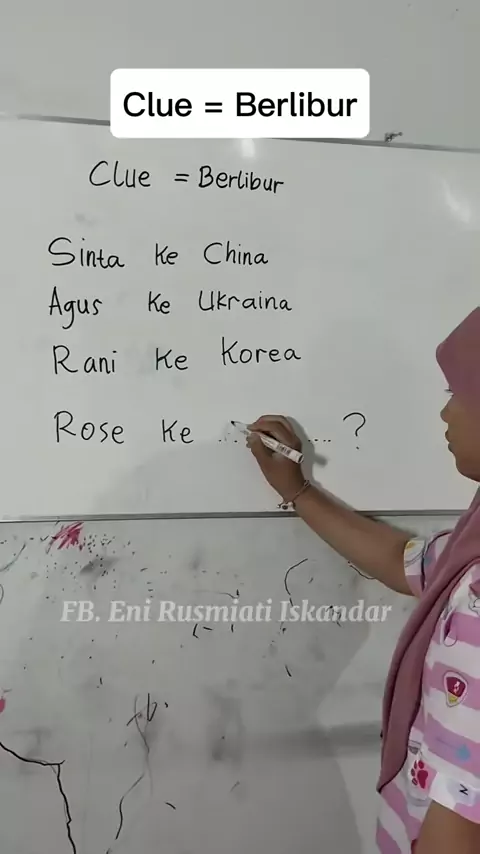 Clue = Berlibur
Clue = Berlibur
Sinta ke China
Agus ke Ukraina
Rani ke Korea
Rose ke ........ ?
FB. Eni Rusmiati Iskandar